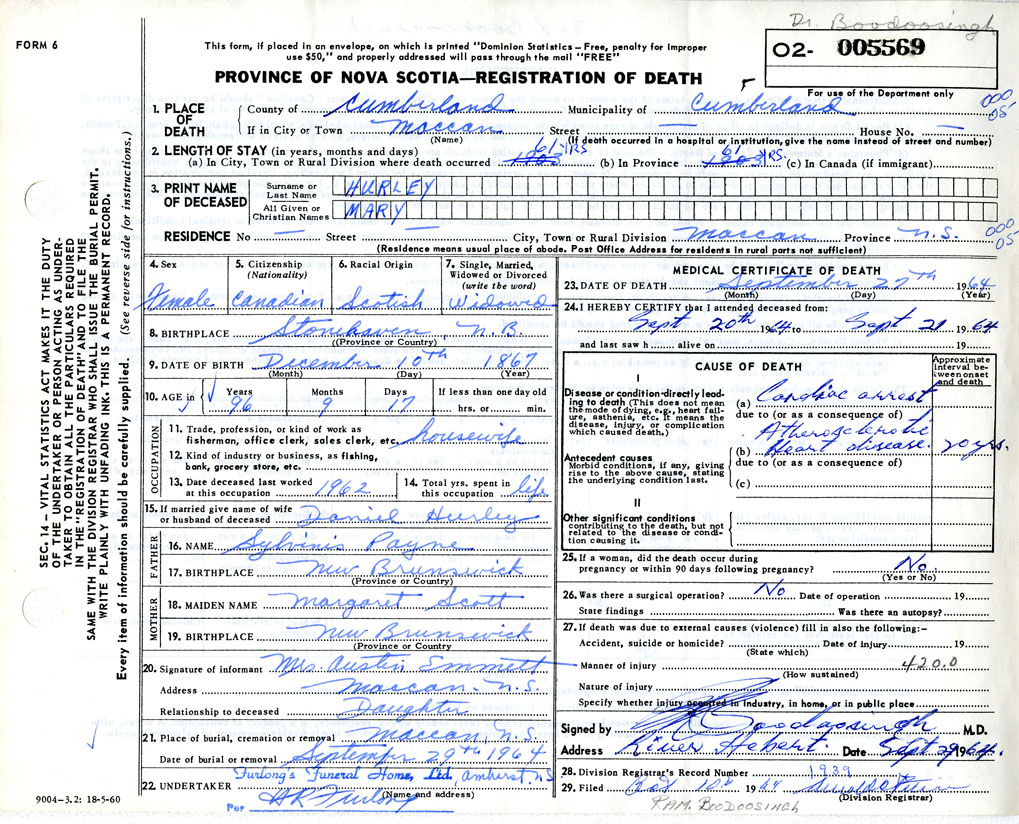 Dr. Boodoosingh
FORM 6
This form, if placed in an envelope, on which is printed "Dominion Statistics - Free, penalty for improper
use $50," and properly addressed will pass through the mail "FREE"
O2- 005569
PROVINCE OF NOVA SCOTIA—REGISTRATION OF DEATH
For use of the Department only
1. PLACE OF DEATH
County of Cumberland Municipality of Cumberland
000
05
If in City or Town Maccan Street — House No. —
(Name) (If death occurred in a hospital or institution, give the name instead of street and number)
2. LENGTH OF STAY (in years, months and days)
(a) In City, Town or Rural Division where death occurred 1903 61 YRS (b) In Province 1903 61 YRS. (c) In Canada (if immigrant)
3. PRINT NAME OF DECEASED
Surname or Last Name HURLEY
All Given or Christian Names MARY
RESIDENCE No — Street — City, Town or Rural Division Maccan Province N.S.
000
05
(Residence means usual place of abode. Post Office Address for residents in rural parts not sufficient)
4. Sex 5. Citizenship (Nationality) 6. Racial Origin 7. Single, Married, Widowed or Divorced (write the word)
Female Canadian Scotish Widowed
8. BIRTHPLACE Stonehaven N.B.
(Province or Country)
9. DATE OF BIRTH December 10th 1867
(Month) (Day) (Year)
10. AGE in Years Months Days If less than one day old
96 9 17 hrs. or min.
OCCUPATION
11. Trade, profession, or kind of work as
fisherman, office clerk, sales clerk, etc. housewife
12. Kind of industry or business, as fishing,
bank, grocery store, etc.
13. Date deceased last worked
at this occupation 1962
14. Total yrs. spent in
this occupation life
15. If married give name of wife
or husband of deceased Daniel Hurley
FATHER
16. NAME Sylvinis Payne
17. BIRTHPLACE New Brunswick
(Province or Country)
MOTHER
18. MAIDEN NAME Margaret Scott
19. BIRTHPLACE New Brunswick
(Province or Country
20. Signature of informant Mrs Austin Emmett
Address Maccan N.S.
Relationship to deceased Daughter
21. Place of burial, cremation or removal Maccan, N.S.
Date of burial or removal September 29th 1964
Furlong's Funeral Home, Ltd. Amherst, NS
22. UNDERTAKER (Name and address)
Per A R Furlong
9004-3.2: 18-5-60
MEDICAL CERTIFICATE OF DEATH
23. DATE OF DEATH September 27th 1964
(Month) (Day) (Year)
24. I HEREBY CERTIFY that I attended deceased from:
Sept 20th 1964 to Sept 21 1964
and last saw h alive on 19
CAUSE OF DEATH
Approximate interval between onset and death
I
Disease or condition directly leading to death (This does not mean the mode of dying, e.g., heart failure, asthenia, etc. It means the disease, injury, or complication which caused death.)
(a) Cardiac arrest
due to (or as a consequence of)
Atherosclerotic
(b) Heart disease. 20 yrs.
Antecedent causes
Morbid conditions, if any, giving rise to the above cause, stating the underlying condition last.
due to (or as a consequence of)
(c)
II
Other significant conditions
contributing to the death, but not related to the disease or condition causing it.
25. If a woman, did the death occur during
pregnancy or within 90 days following pregnancy? No
(Yes or No)
26. Was there a surgical operation? No Date of operation 19
State findings Was there an autopsy?
27. If death was due to external causes (violence) fill in also the following:-
Accident, suicide or homicide? Date of injury 19
(State which)
Manner of injury 420.0
(How sustained)
Nature of injury
Specify whether injury occurred in industry, in home, or in public place
Signed by Boodoosingh M.D.
Address River Hebert. Date Sept 29 1964.
28. Division Registrar's Record Number 1939
29. Filed Oct 10th 1964
(Division Registrar)
R.A.M. BOODOOSINGH
SEC. 14 - VITAL STATISTICS ACT MAKES IT THE DUTY
OF THE UNDERTAKER OR PERSON ACTING AS UNDER-
TAKER TO OBTAIN ALL THE PARTICULARS REQUIRED
IN THE "REGISTRATION OF DEATH" AND TO FILE THE
SAME WITH THE DIVISION REGISTRAR WHO SHALL ISSUE THE BURIAL PERMIT.
WRITE PLAINLY WITH UNFADING INK. THIS IS A PERMANENT RECORD.
Every item of information should be carefully supplied. (See reverse side for instructions.)